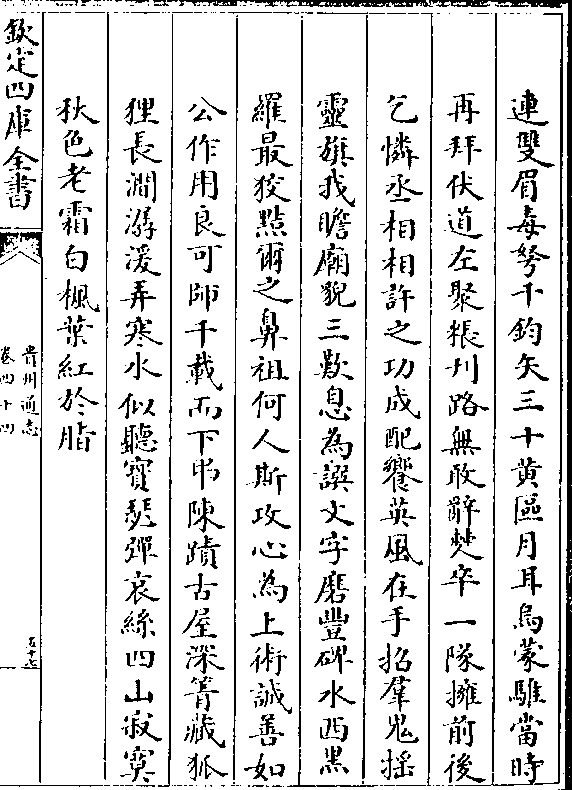 連雙眉毒弩千鈞矢三十黄區月耳烏蒙騅當時
再拜伏道左聚糧刋路無敢辭僰卒一隊擁前後
乞憐丞相相許之功成配饗英風在手招羣鬼揺
靈旗我瞻廟貌三歎息為譔文字磨豐碑水西黒
羅最狡㸃爾之鼻祖何人斯攻心為上術誠善如
公作用良可師千載而下弔陳蹟古屋深箐藏狐
狸長澗潺湲弄寒水似聽寳瑟彈哀絲四山寂寞
秋色老霜白楓葉紅於脂
欽定四庫全書
貴州通志
卷四十四
五十七